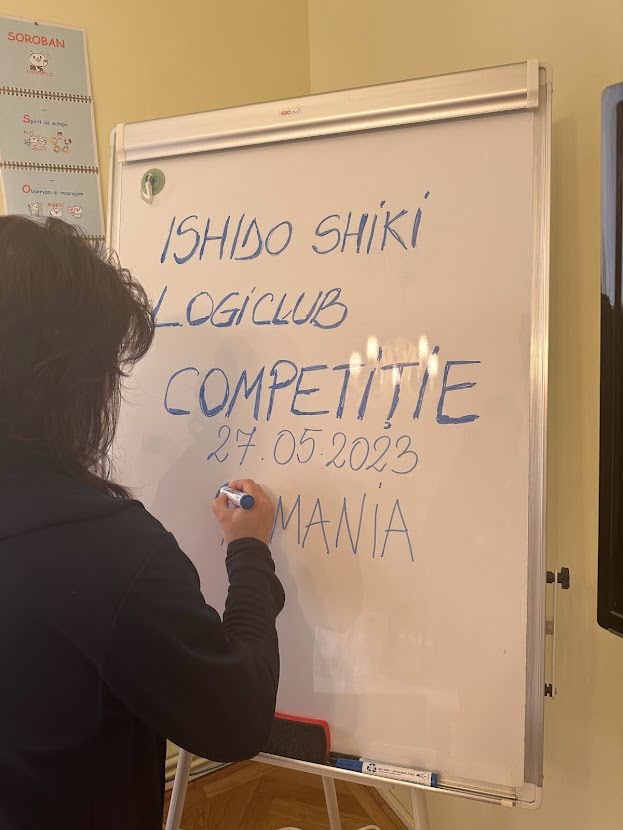 SOROBAN
Spirit de echipa
Observam si incurajam
ISHIDO SHIKI
LOGICLUB
COMPETIȚIE
27.05.2023
MANIA